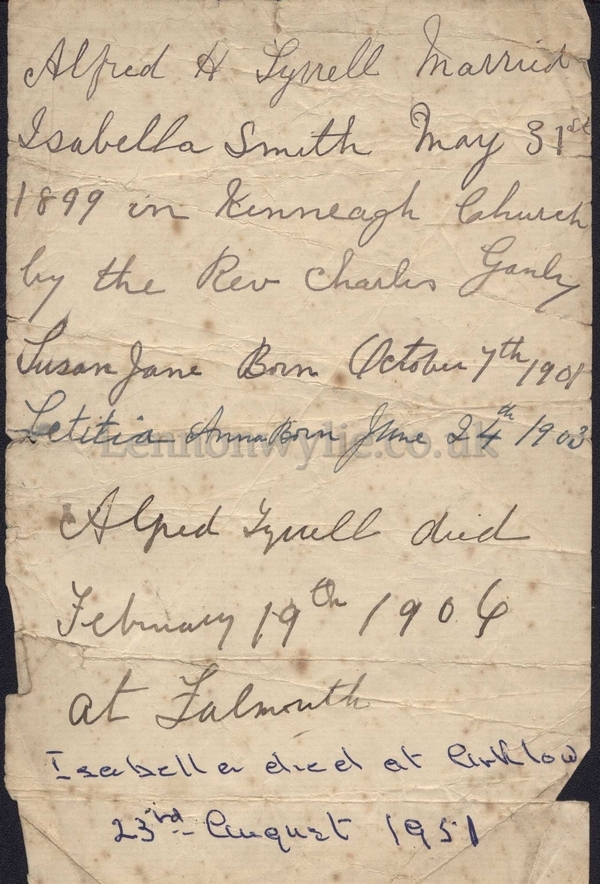 Alfred H Tyrrell Married
Isabella Smith May 31st
1899 in Kinneagh Church
by the Rev Charles Ganly
Susan Jane Born October 7th 1901
Letitia Anna Born June 24th 1903
Lennonwylie.co.uk
Alfred Tyrrell died
February 19th 1906
at Falmouth
Isabella died at Arklow
23rd August 1951